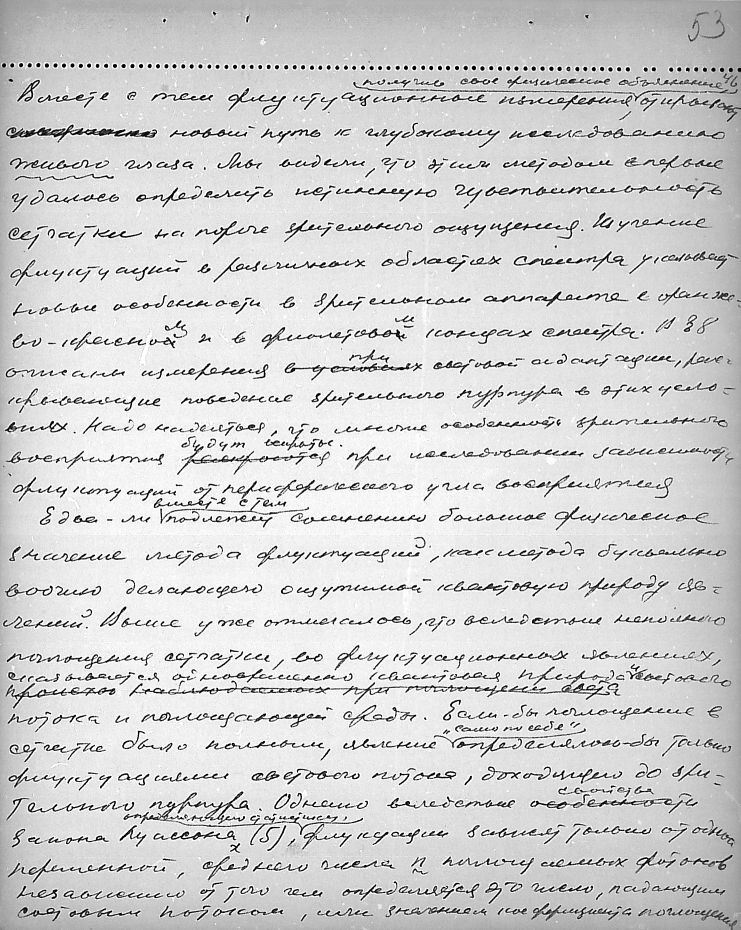 53
получив свое физическое объяснение
Вместе с тем флуктуационные измерения, открывают
новый путь к глубокому исследованию
живого глаза. Мы видели, что этим методом впервые
удалось определить истинную чувствительность
сетчатки на пороге зрительного ощущения. Изучение
флуктуаций в различных областях спектра указывает
новые особенности в зрительном аппарате в оранже-
во-красном и в фиолетовом концах спектра. В § 8
описаны измерения при световой адаптации, рас-
крывающие поведение зрительного пурпура в этих усло-
виях. Надо надеяться, что многие особенности зрительного
будут вскрыты
восприятия при исследовании зависимости
флуктуаций от периферического угла восприятия
вместе с тем
Едва-ли подлежит сомнению большое физическое
значение метода флуктуаций, как метода буквально
воочию делающего ощутимой квантовую природу яв-
лений. Выше уже отмечалось, что вследствие неполного
поглощения сетчатки, во флуктуационных явлениях,
сказывается одновременно квантовая природа и светового
потока и поглощающей среды. Если-бы поглощение в
"само по себе"
сетчатке было полным, явление определялось-бы только
флуктуациями светового потока, доходящего до зри-
тельного пурпура. Однако вследствие свойства
определяющего статистику,
закона Пуассона (5), флуктуации зависят только от одной
переменной, среднего числа n поглощаемых фотонов
независимо от того чем определяется это число, падающим
световым потоком, или значением коэффициента поглощения